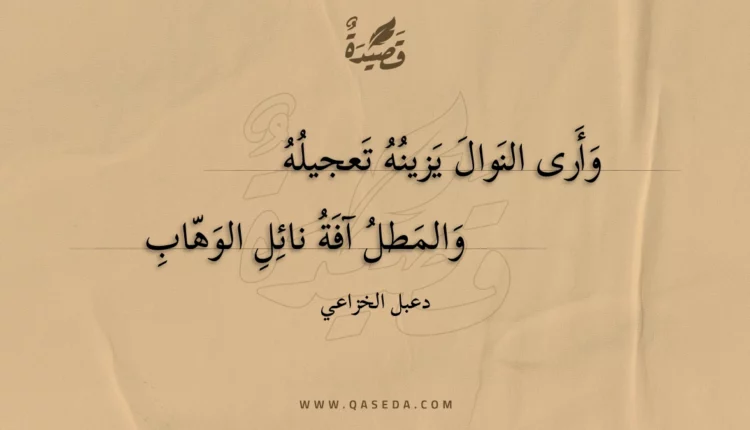 قَصِيْدَةٌ
وَأَرى النَوالَ يَزينُهُ تَعجيلُهُ
وَالمَطلُ آفَةُ نائِلِ الوَهّابِ
دعبل الخزاعي
WWW.QASEDA.COM